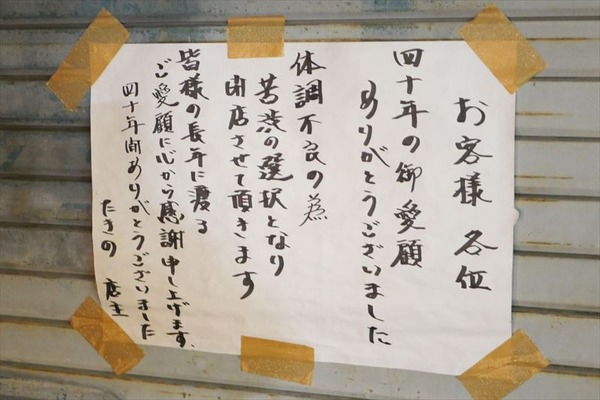 お客様 各位
四十年の御愛顧
ありがとうございました
体調不良の為
苦渋の選択となり
閉店させて頂きます
皆様の長年に渡る
ご愛顧に心から感謝申し上げます、
四十年間ありがとうございました
たきの 店主